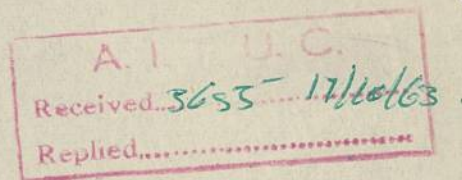 A. I. T. U. C.
Received..3655 17/10/63
Replied..............................